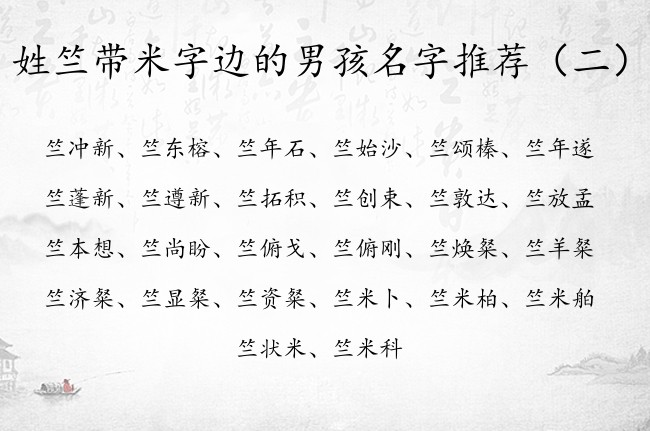 姓竺带米字边的男孩名字推荐（二）
竺冲新、竺东榕、竺年石、竺始沙、竺颂榛、竺年遂
竺蓬新、竺遵新、竺拓积、竺创束、竺敦达、竺放孟
竺本想、竺尚盼、竺俯戈、竺俯刚、竺焕粲、竺羊粲
竺济粲、竺显粲、竺资粲、竺米卜、竺米柏、竺米舶
竺状米、竺米科